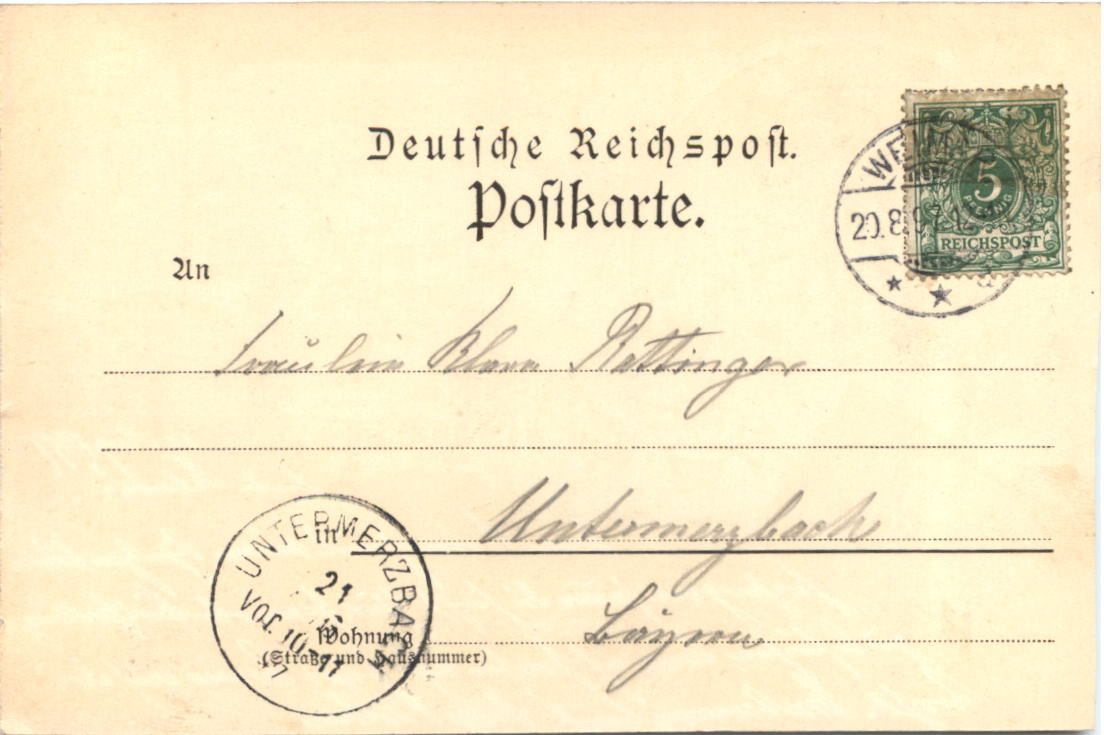 Deutsche Reichspost.
Postkarte.
5
PFENNIG
REICHSPOST
20.8.97
An
Fräulein Klara Rattinger
in Untermerzbach
UNTERMERZBACH
21
VOR. 10-11
97
Wohnung
(Straße und Hausnummer)
Bayern